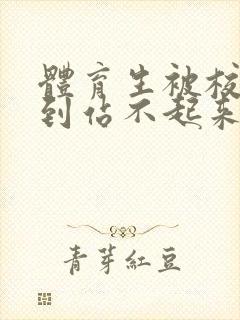 體育生被校
到站不起来
青芽紅豆